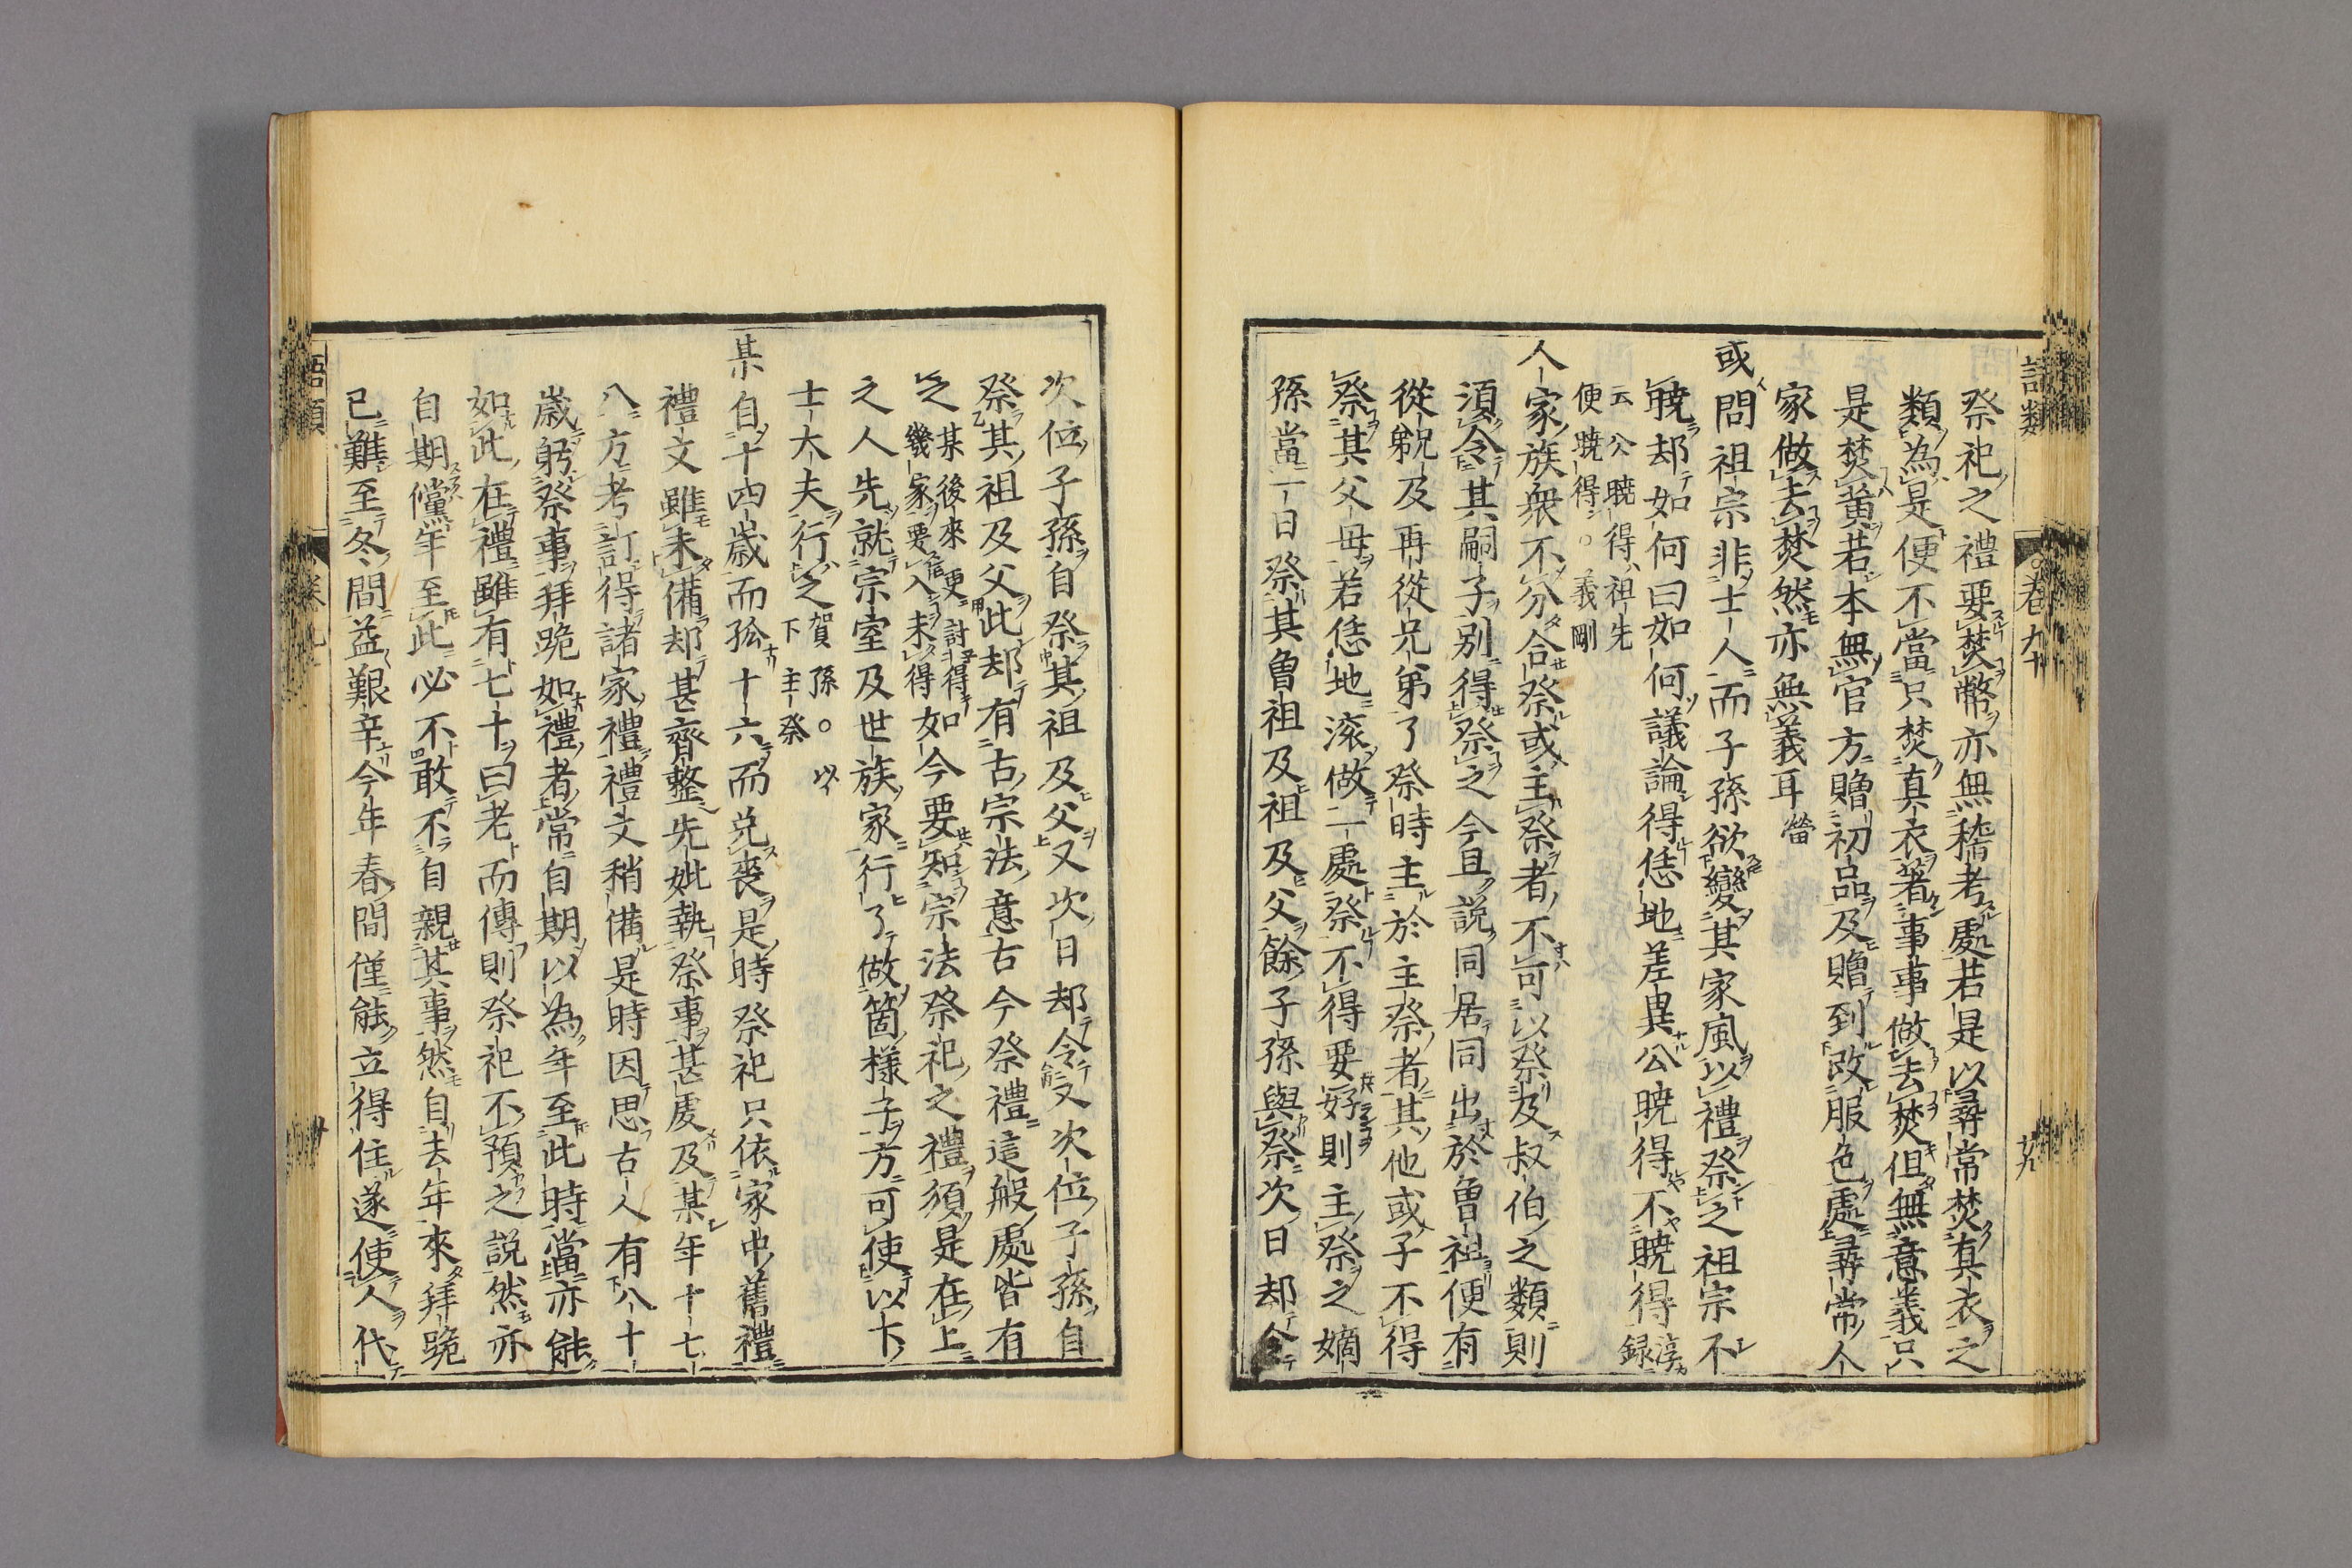 語類
卷九十
廿九
祭祀之禮要焚幣亦無稽考處若是以尋常焚真衣之
類為是便不當只焚真衣著事事做去焚但無意義只
是焚黃若本無官方贈初品及贈到改服色處尋常人
家做去焚然亦無義耳㽦
或問祖宗非士人而子孫欲變其家風以禮祭之祖宗不
曉却如何曰如何議論得恁地差異公曉得不曉得淳錄
云公曉得祖先
便曉得。義剛
人家族衆不分合祭或主祭者不可以祭及叔伯之類則
須令其嗣子別得祭之今且說同居同出於曾祖便有
從兄弟及再從兄弟了祭時主於主祭者其他或子不得
祭其父母若恁地滚做一處祭不得要好則主祭之嫡
孫當一日祭其曾祖及祖及父餘子孫與祭次日却令
次位子孫自祭其祖及父又次日却令又次位子孫自
祭其祖及父此却有古宗法意古今祭禮這般處皆有
之某後來更討得
幾家要入未得如今要知宗法祭祀之禮須是在上
之人先就宗室及世族家行了做箇樣子方可使以下
士大夫行之賀孫。以
下主祭
某自十四歲而孤十六而免喪是時祭祀只依家中舊禮
禮文雖未備却甚齊整先妣執祭事甚虔及某年十七
八方考訂得諸家禮禮文稍備是時因思古人有八十
歲躬祭事拜跪如禮者常自期以為年至此時當亦能
如此在禮雖有七十曰老而傳則祭祀不預之說然亦
自期儻年至此必不敢不自親其事然自去年來拜跪
已難至冬間益艱辛今年春間僅能立得住遂使人代
語類